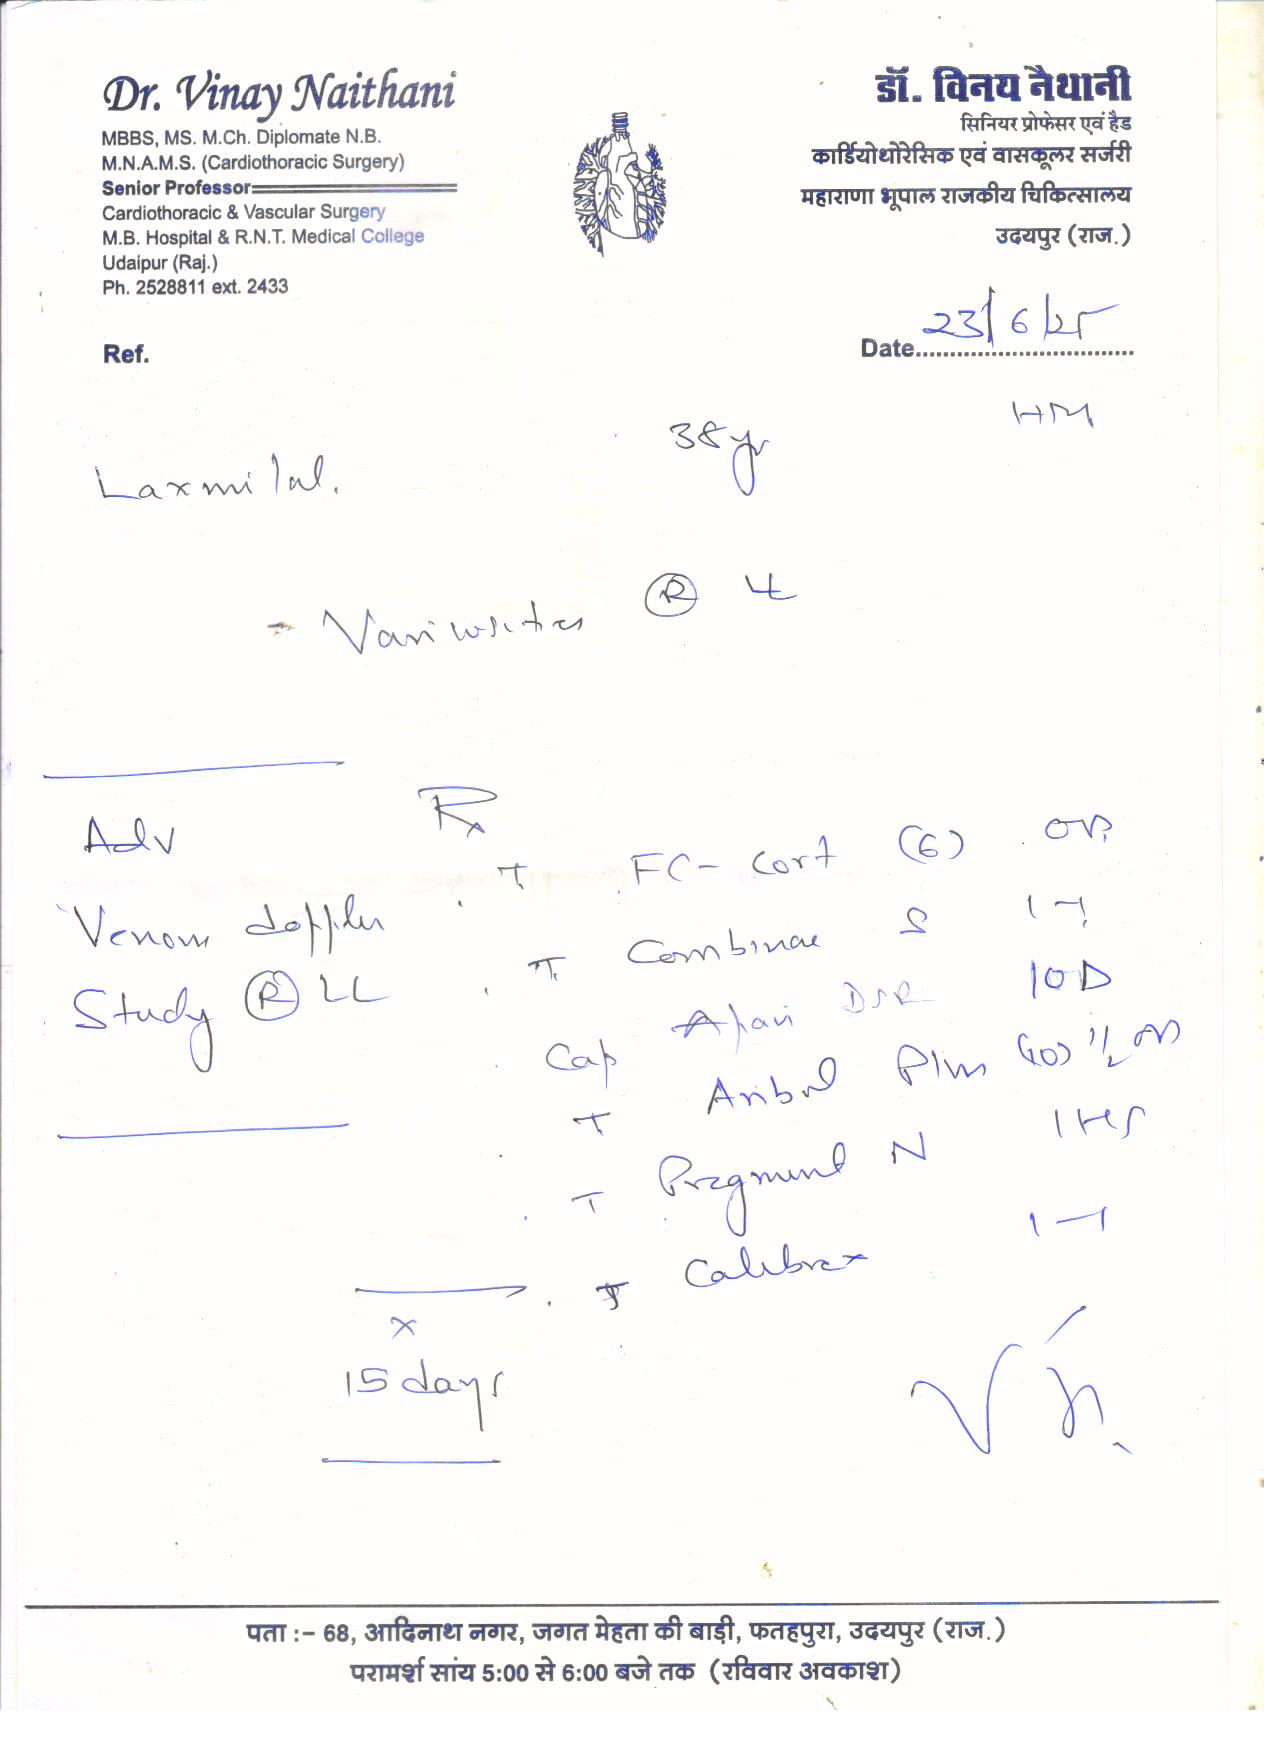 Dr. Vinay Naithani
MBBS, MS. M.Ch. Diplomate N.B.
M.N.A.M.S. (Cardiothoracic Surgery)
Senior Professor
Cardiothoracic & Vascular Surgery
M.B. Hospital & R.N.T. Medical College
Udaipur (Raj.)
Ph. 2528811 ext. 2433
डॉ. विनय नैथानी
सिनियर प्रोफेसर एवं हैड
कार्डियोथोरेसिक एवं वासकूलर सर्जरी
महाराणा भूपाल राजकीय चिकित्सालय
उदयपुर (राज.)
Ref.
Date 23/6/25
HM
Laxmilal. 38 yr
- Varicosities Ⓡ LL
Adv
Venous doppler
Study Ⓡ LL
Rx
T FC-Cort (6) OD
T. Combinae S 1-1
Cap DSR 1OD
T Plus 1/2 OD
T N 1HS
T 1-1
x
15 days
पता :- 68, आदिनाथ नगर, जगत मेहता की बाड़ी, फतहपुरा, उदयपुर (राज.)
परामर्श सांय 5:00 से 6:00 बजे तक (रविवार अवकाश)